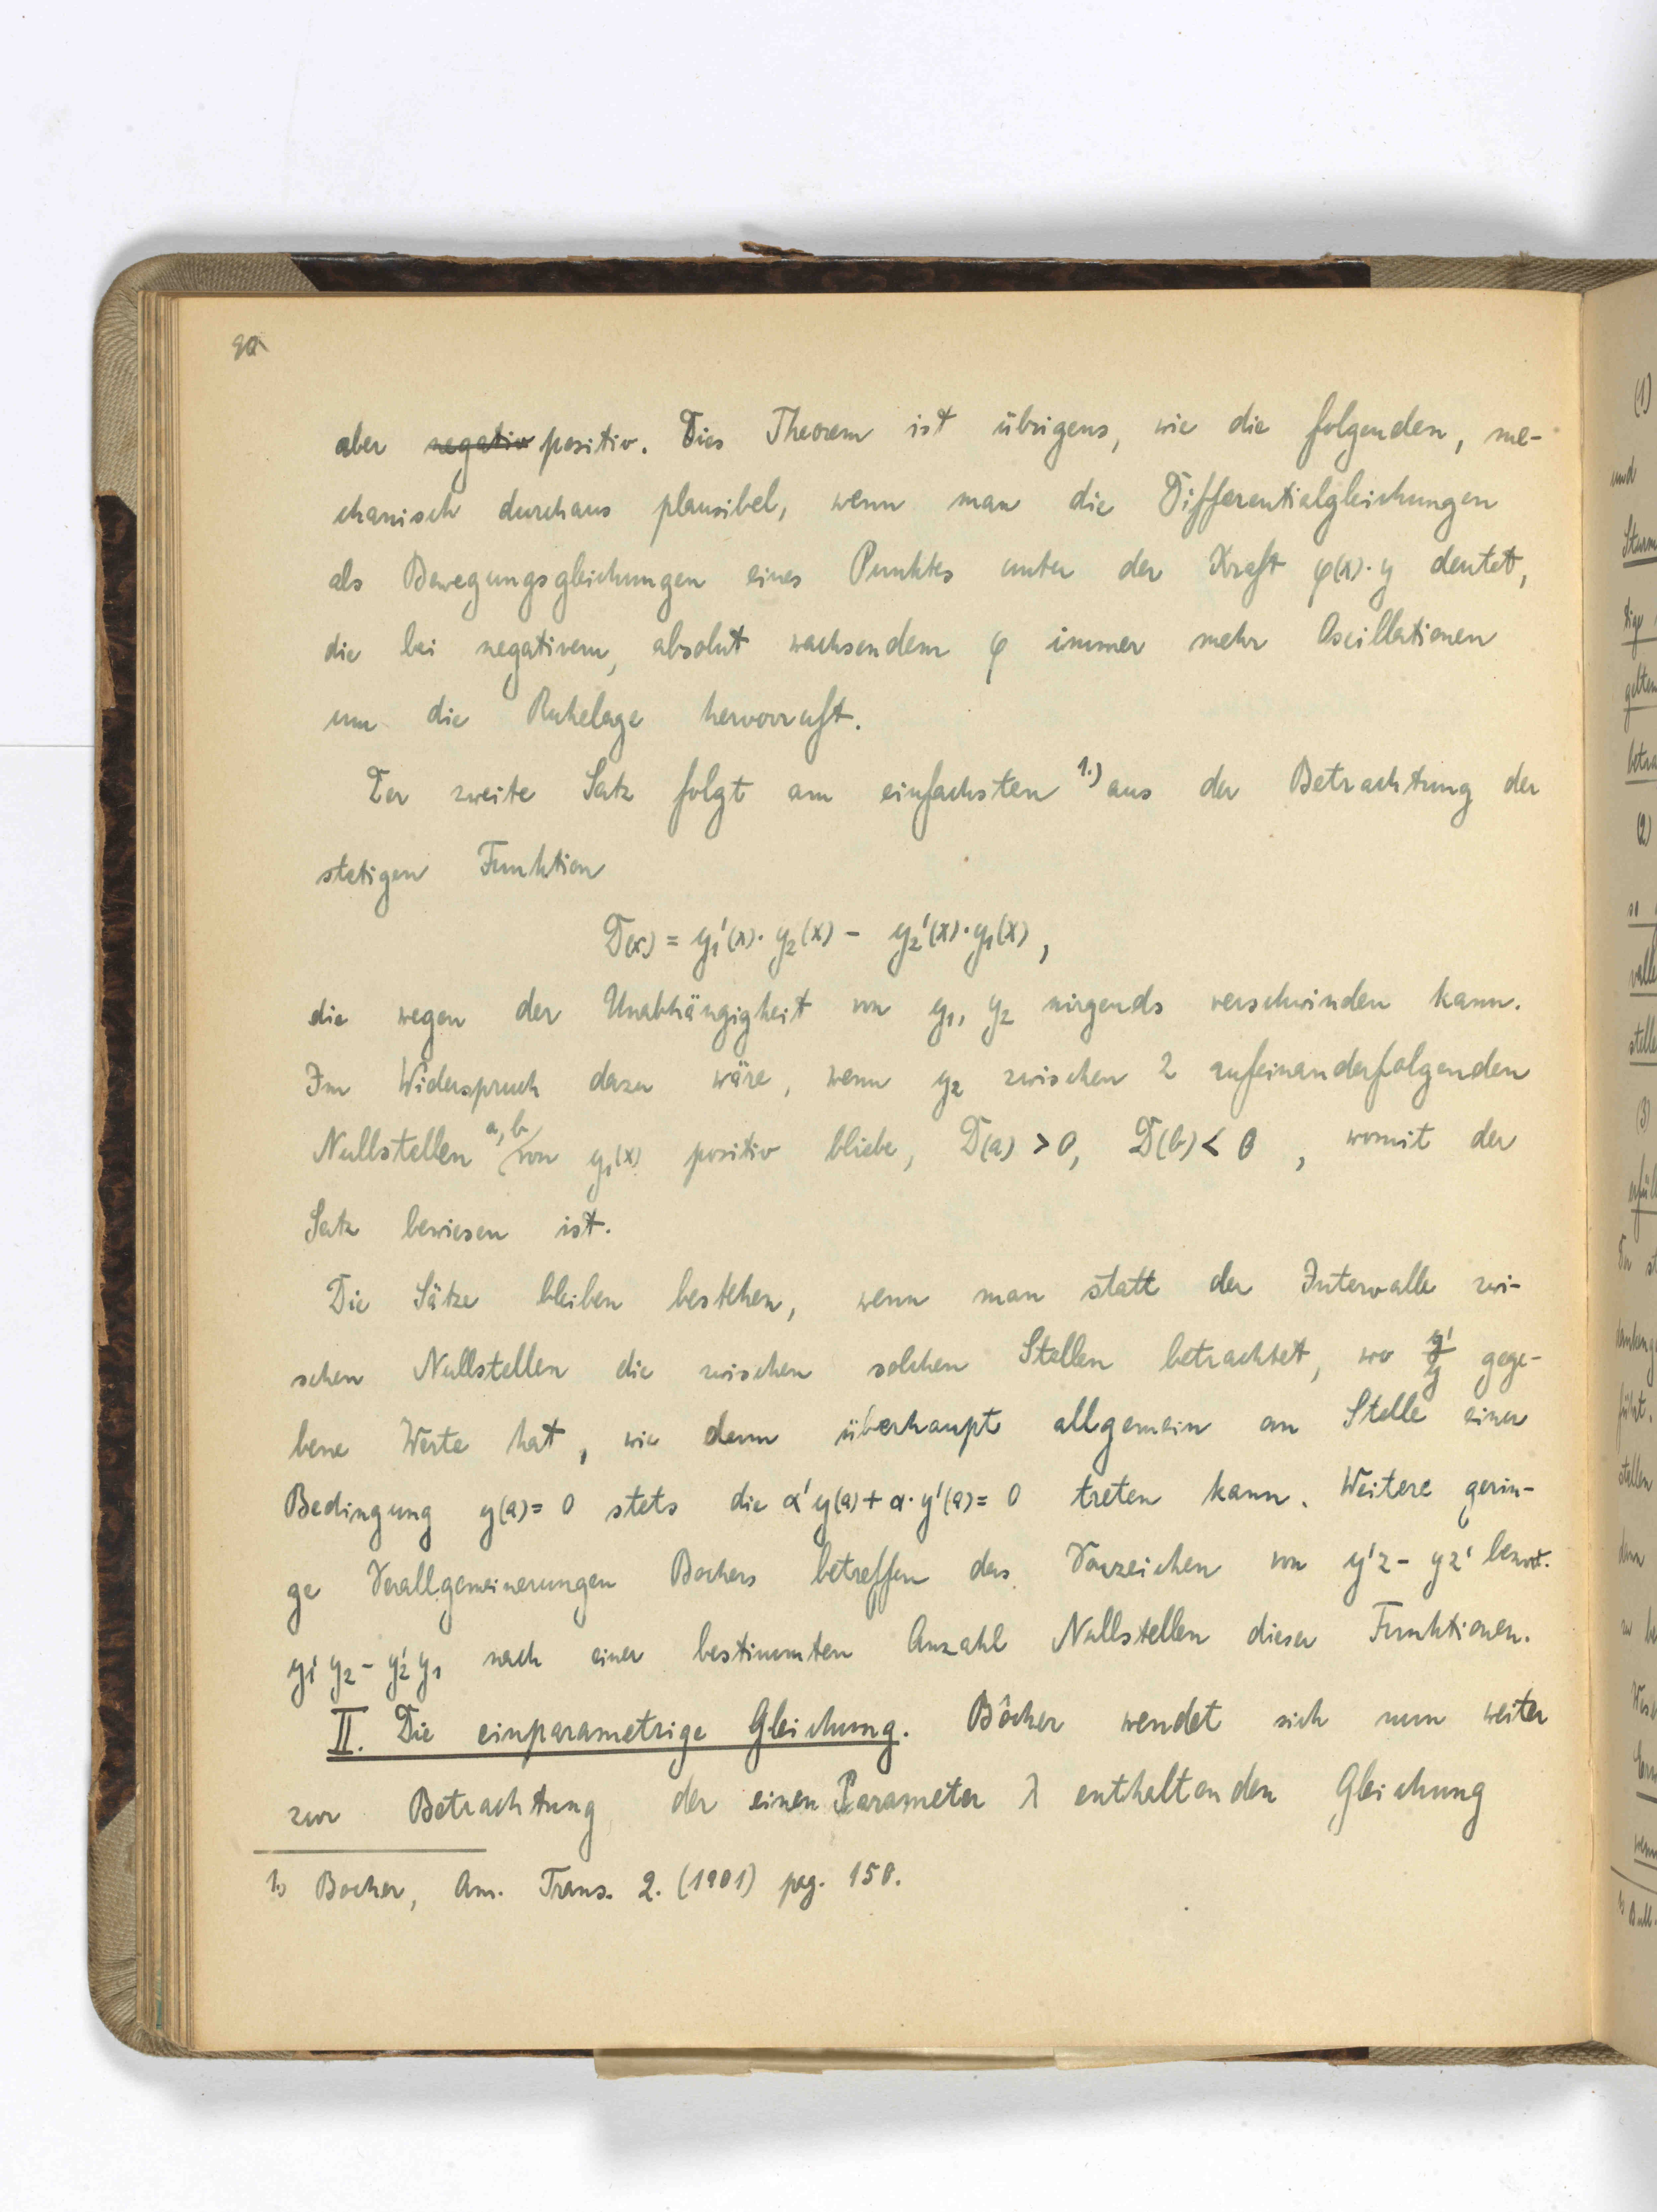 90
aber negativ positiv. Dies Theorem ist übrigens, wie die folgenden, me-
chanisch durchaus plausibel, wenn man die Differentialgleichungen
als Bewegungsgleichungen eines Punktes unter der Kraft φ(x)·y deutet,
die bei negativem, absolut wachsendem φ immer mehr Oscillationen
um die Ruhelage hervorruft.
Der zweite Satz folgt am einfachsten 1.) aus der Betrachtung der
stetigen Funktion
D(x) = y₁'(x)·y₂(x) - y₂'(x)·y₁(x),
die wegen der Unabhängigkeit von y₁, y₂ nirgends verschwinden kann.
Im Widerspruch dazu wäre, wenn y₂ zwischen 2 aufeinanderfolgenden
Nullstellen a, b von y₁(x) positiv bliebe, D(a) > 0, D(b) < 0, womit der
Satz bewiesen ist.
Die Sätze bleiben bestehen, wenn man statt der Intervalle zwi-
schen Nullstellen die zwischen solchen Stellen betrachtet, wo y'/y gege-
bene Werte hat, wie denn überhaupt allgemein an Stelle einer
Bedingung y(a) = 0 stets die α'y(a) + α·y'(a) = 0 treten kann. Weitere gerin-
ge Verallgemeinerungen Bochers betreffen das Vorzeichen von y'z - yz' bezw.
y₁'y₂ - y₂'y₁ nach einer bestimmten Anzahl Nullstellen dieser Funktionen.
II. Die einparametrige Gleichung. Bôcher wendet sich nun weiter
zur Betrachtung der einen Parameter λ enthaltenden Gleichung
1.) Bocher, Am. Trans. 2. (1901) pag. 150.
(1)
und
(2)
(3)